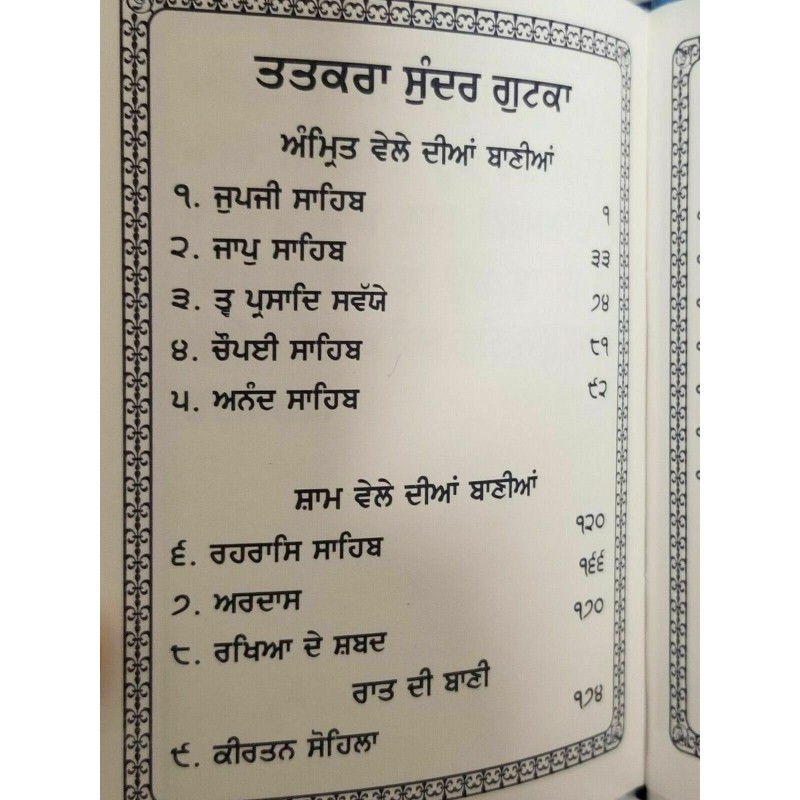 ਤਤਕਰਾ ਸੁੰਦਰ ਗੁਟਕਾ
ਅੰਮ੍ਰਿਤ ਵੇਲੇ ਦੀਆਂ ਬਾਣੀਆਂ
੧. ਜੁਪਜੀ ਸਾਹਿਬ ੧
੨. ਜਾਪੁ ਸਾਹਿਬ ੩੩
੩. ਤ੍ਵ ਪ੍ਰਸਾਦਿ ਸਵੱਯੇ ੭੪
੪. ਚੌਪਈ ਸਾਹਿਬ ੮੧
੫. ਅਨੰਦ ਸਾਹਿਬ ੯੨
ਸ਼ਾਮ ਵੇਲੇ ਦੀਆਂ ਬਾਣੀਆਂ
੬. ਰਹਰਾਸਿ ਸਾਹਿਬ ੧੨੦
੭. ਅਰਦਾਸ ੧੬੬
੮. ਰਖਿਆ ਦੇ ਸ਼ਬਦ ੧੭੦
ਰਾਤ ਦੀ ਬਾਣੀ
੯. ਕੀਰਤਨ ਸੋਹਿਲਾ ੧੭੪